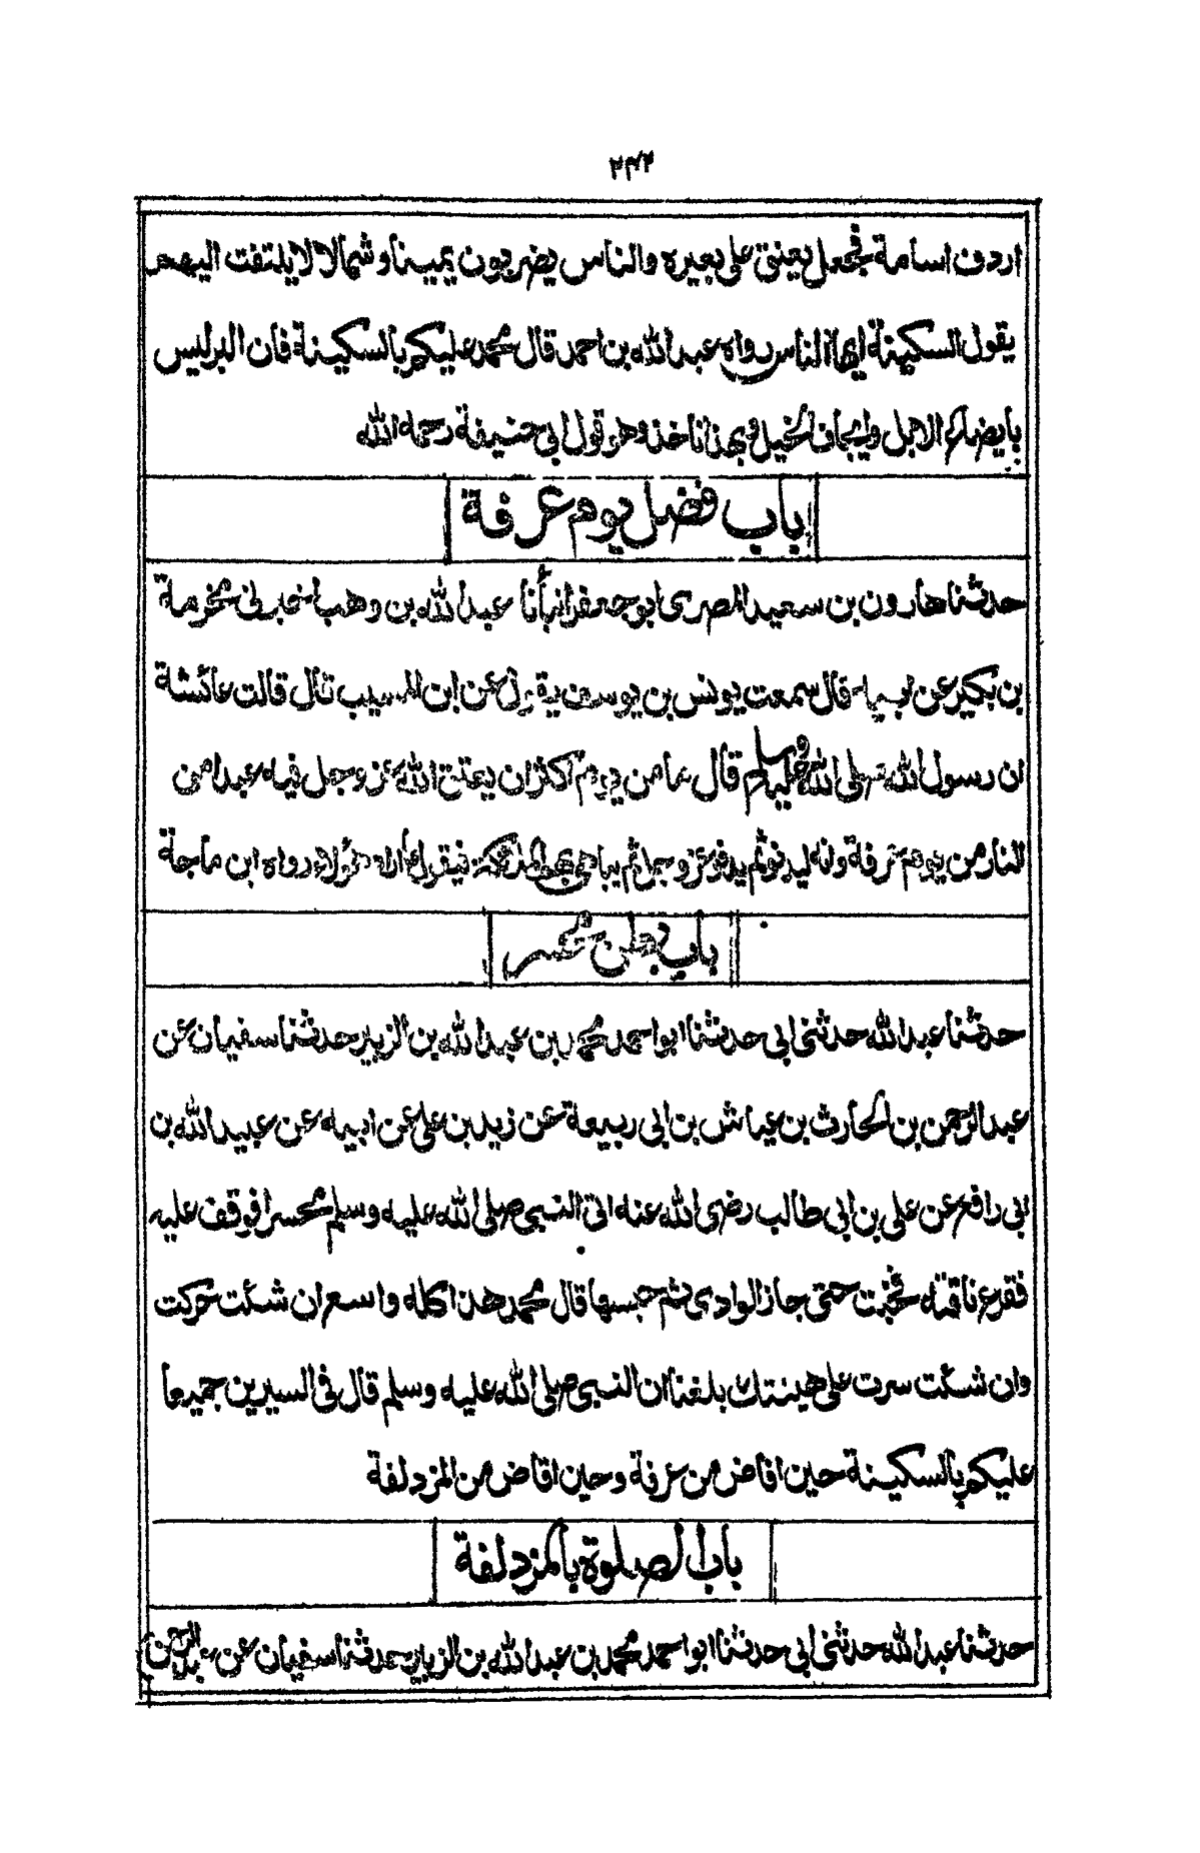 ٢٤٢
اردف اسامة فجعل يعنق على بعيره والناس يضربون يمينا وشمالا لا يلتفت اليهم
يقول السكينة ايها الناس رواه عبد الله بن احمد قال محمد عليكم بالسكينة فان البر ليس
بايضاع الابل وايجاف الخيل وبهذا ناخذ وهو قول ابي حنيفة رحمه الله
باب فضل يوم عرفة
حدثنا هارون بن سعيد المصرى ابو جعفر انبأنا عبد الله بن وهب اخبرنى مخرمة
بن بكير عن ابيه قال سمعت يونس بن يوسف يقول عن ابن المسيب قال قالت عائشة
ان رسول الله صلى الله عليه وسلم قال ما من يوم اكثر ان يعتق الله عز وجل فيه عبدا من
النار من يوم عرفة وانه ليدنو ثم يباهي بهم الملائكة فيقول ما اراد هؤلاء رواه ابن ماجة
باب بطن محسر
حدثنا عبد الله حدثنى ابى حدثنا ابو احمد محمد بن عبد الله بن الزبير حدثنا سفيان عن
عبد الرحمن بن الحارث بن عياش بن ابى ربيعة عن زيد بن على عن ابيه عن عبيد الله بن
ابى رافع عن على بن ابى طالب رضى الله عنه اتى النبى صلى الله عليه وسلم محسرا فوقف عليه
فقرع ناقته فخبت حتى جاز الوادى ثم حبسها قال محمد هذا كله واسع ان شئت حركت
وان شئت سرت على هينتك بلغنا ان النبى صلى الله عليه وسلم قال فى السيرين جميعا
عليكم بالسكينة حين افاض من عرفة وحين افاض من المزدلفة
باب الصلوة بالمزدلفة
حدثنا عبد الله حدثنى ابى حدثنا ابو احمد محمد بن عبد الله بن الزبير حدثنا سفيان عن عبد الرحمن